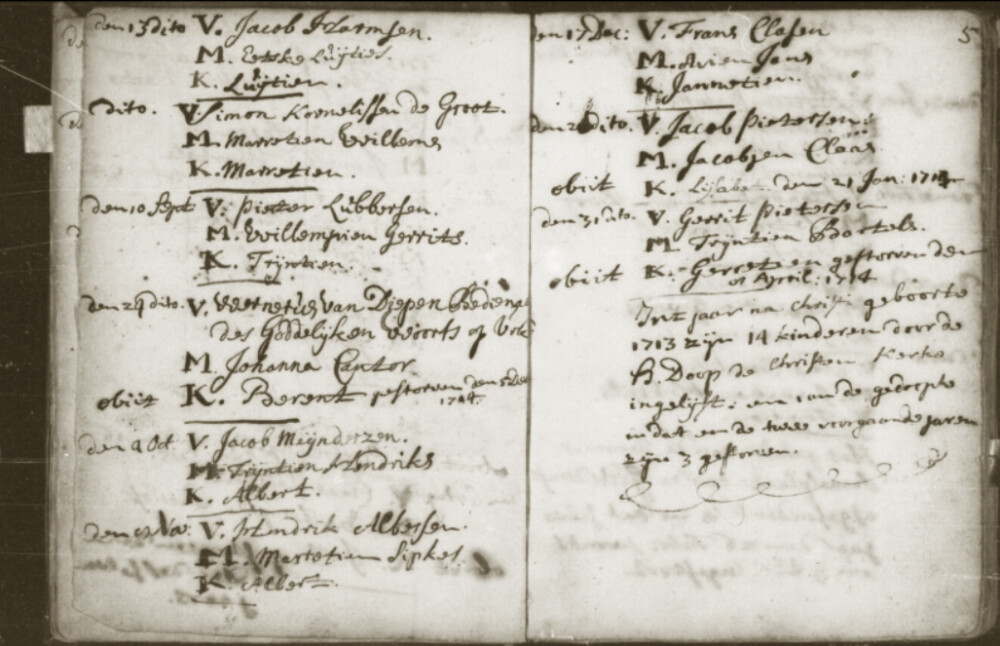 den 13 dito V. Jacob Harmsen.
M. Luÿties.
K. Luÿtien.
dito. V. Simon Kornelissen de Groot.
M. Marretien Willems
K. Marretien.
den 10 Sept V. Pieter Lübbersen.
M. Willempien Gerrits.
K. Trijntien.
den 24 dito. V. van Diepen Bediena
des Goddelijken Woorts op Urk
M. Johanna Cantor.
obiit K. Berent gestorven den
1714.
den Oct. V. Jacob Meijnderzen.
M. Trijntien Hendriks
K. Albert.
den Nov. V. Hendrik Albessen.
M. Marretien Sipkes
K. Albert.
5
den 17 Dec: V. Frans Clasen
M. Jans
K. Jannetien.
den dito. V. Jacob Pietersen.
M. Jacobjen Claas.
obiit K. Lijsabet. den 21 Jan: 1714
den 31 dito. V. Gerrit Pietersen
M. Trijntien Bartels.
obiit K. gestorven den
April: 1714
Int jaar na Christi geboorte
1713 zijn 14 kinderen door de
H. Doop de Christen Kerke
ingelijft. en van de gedoopte
in dat en de twee voorgaande jaren
zijn 3 gestorven.